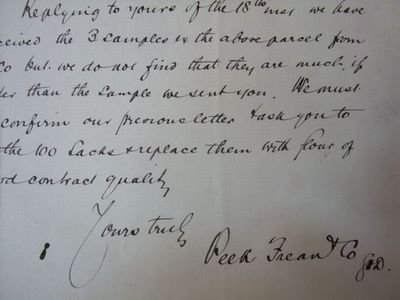 Replying to yours of the 18th inst we have
ceived the 3 samples ex the above parcel from
Co but we do not find that they are much, if
der than the sample we sent you. We must
confirm our previous letter & ask you to
the 100 Sacks & replace them with flour of
rd contract quality
Yours truly
Peek Frean & Co